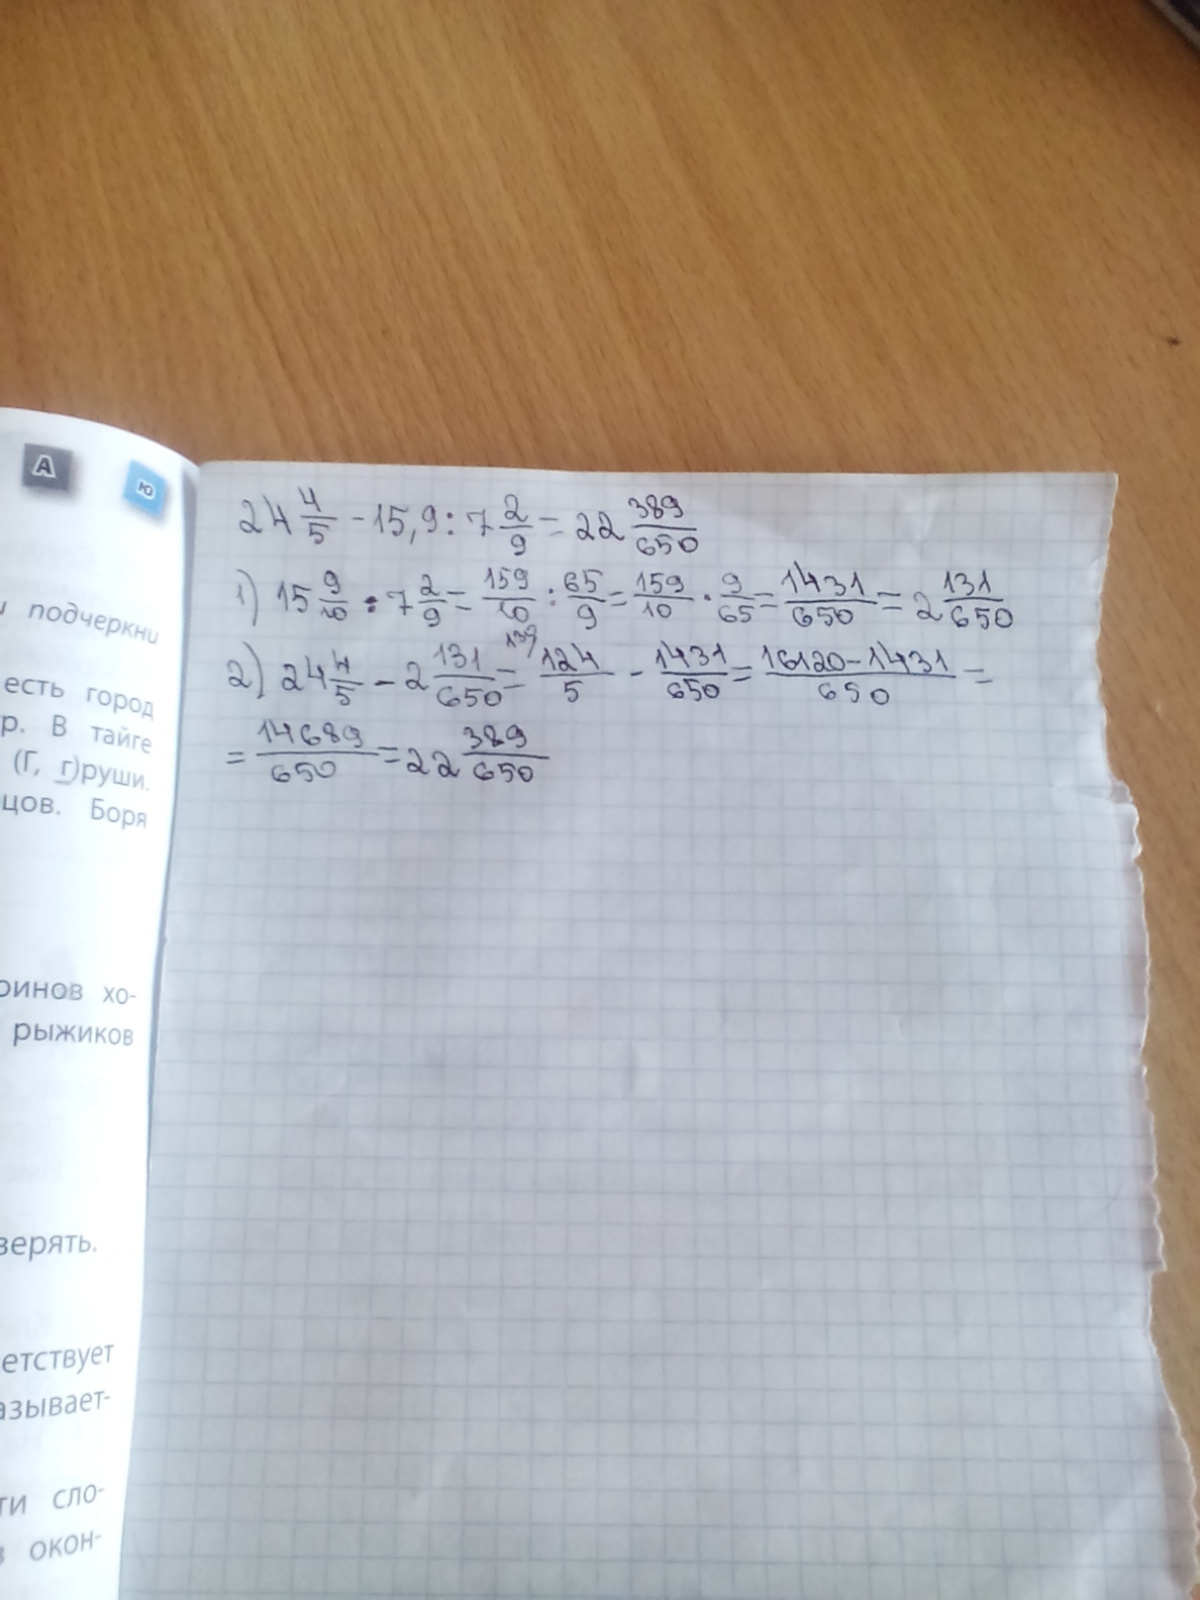 А Ю
и подчеркни
есть город
р. В тайге
(Г, г)руши.
цов. Боря
ринов хо-
рыжиков
верять.
етствует
азывает-
ти сло-
в окон-
24 4/5 - 15,9 : 7 2/9 = 22 389/650
1) 15 9/10 : 7 2/9 = 159/10 : 65/9 = 159/10 · 9/65 = 1431/650 = 2 131/650
2) 24 4/5 - 2 131/650 = 124/5 - 1431/650 = 16120-1431/650 =
= 14689/650 = 22 389/650